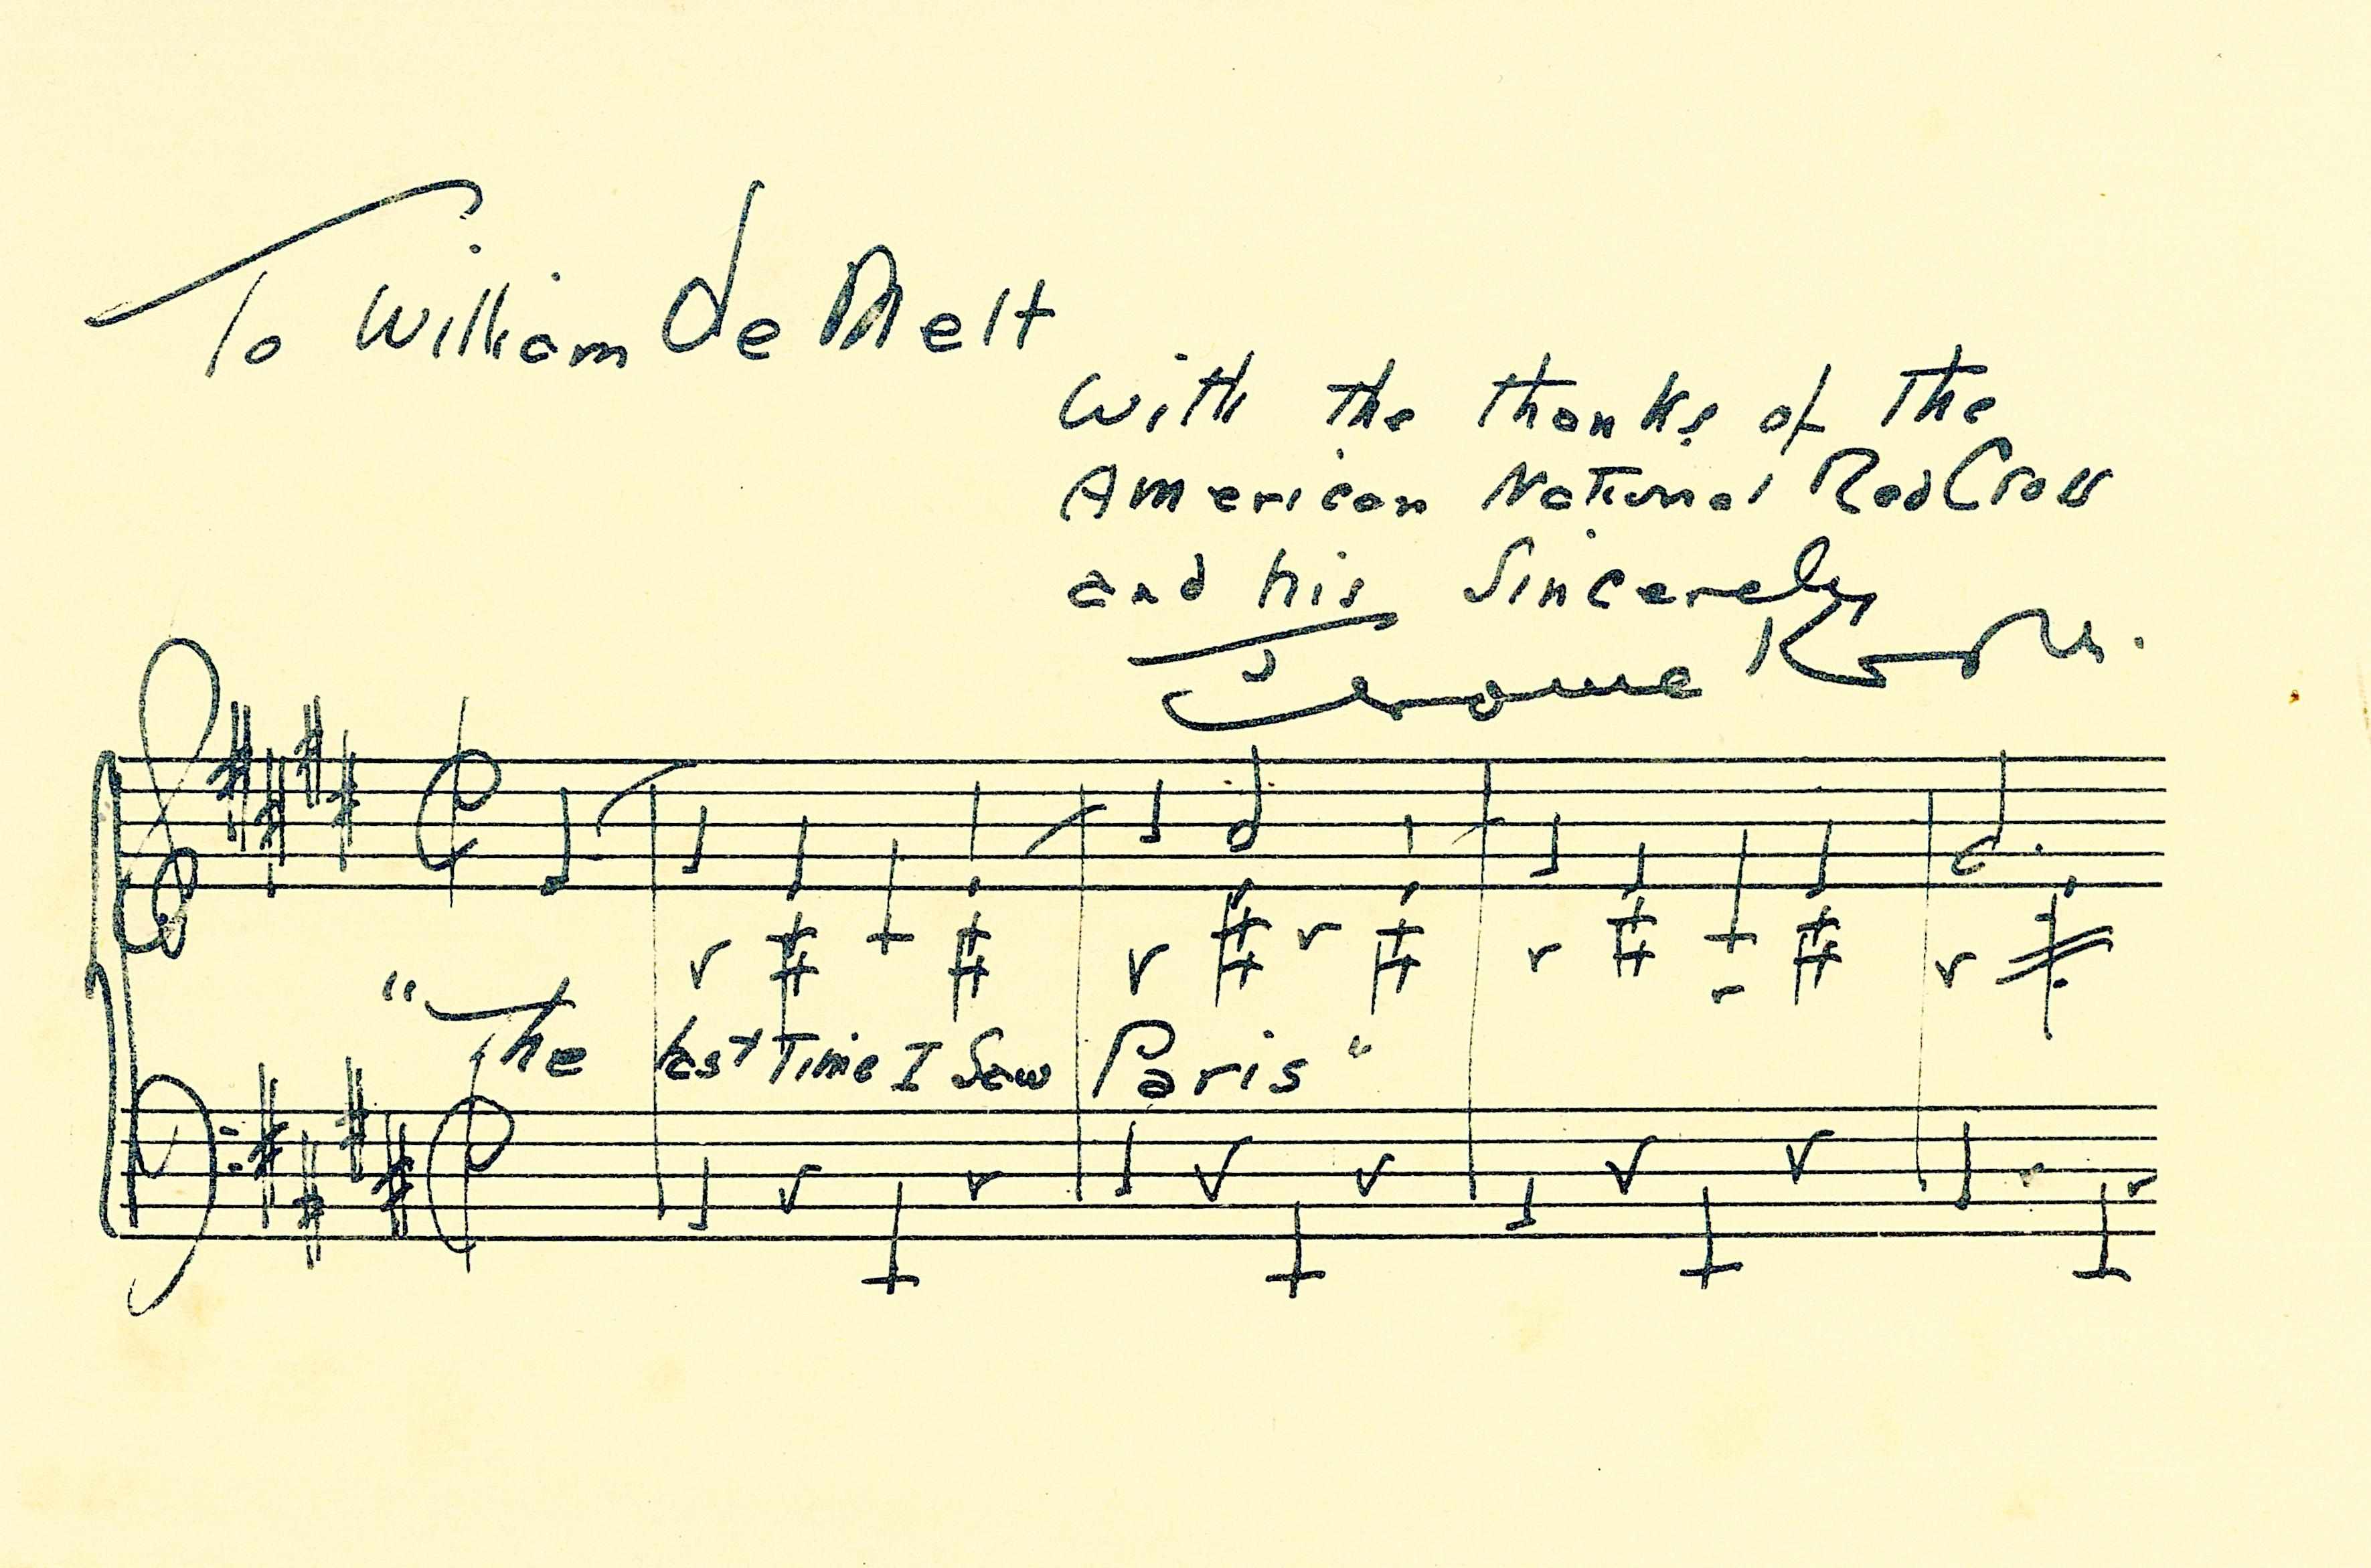 To William de Melt
With the thanks of the
American National Red Cross
and his Sincerely
Jerome Kern.
"The last Time I Saw Paris"